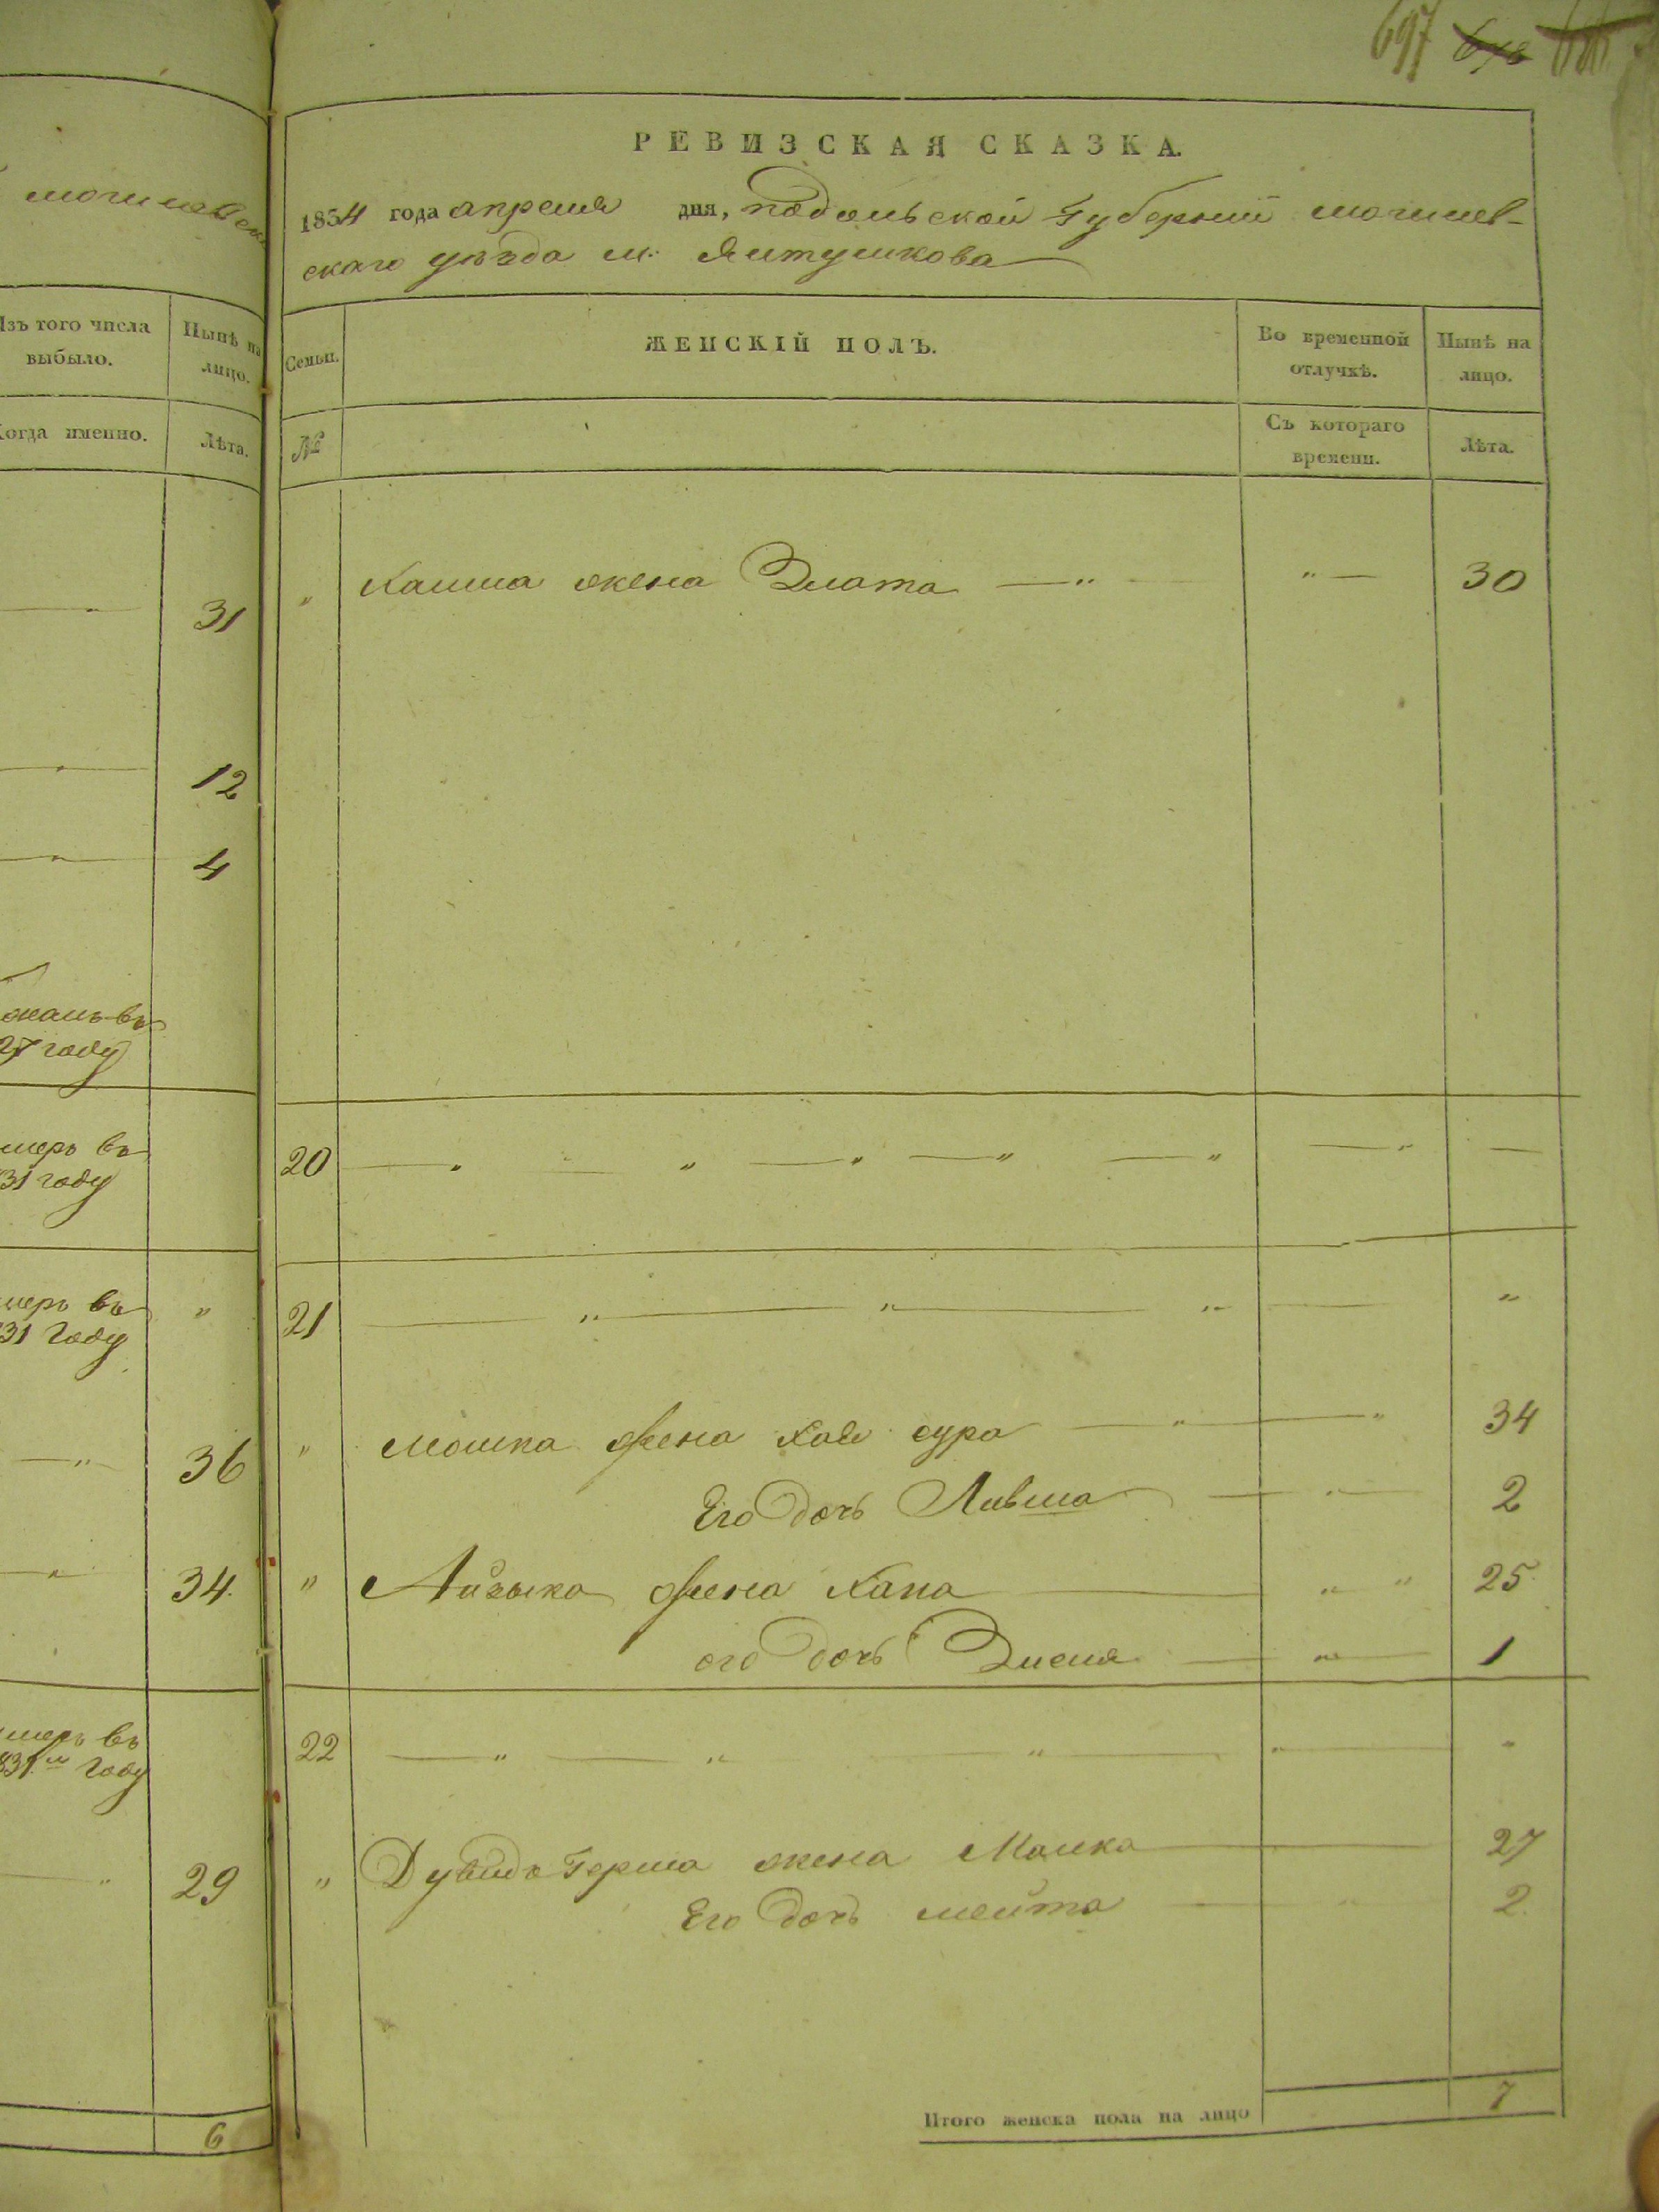 697
могилевск
Изъ того числа
выбыло.
Нынѣ на
лицо.
Когда именно.
Лѣта.
31
12
4
27 году
умеръ въ
31 году
умеръ въ
31 году
36
34
умеръ въ
831 году
29
6
РЕВИЗСКАЯ СКАЗКА.
1834 года апреля дня, подольской губерній могилев-
скаго уѣзда м: Ялтушкова
Семьи.
ЖЕНСКІЙ ПОЛЪ.
Во временной
отлучкѣ.
Нынѣ на
лицо.
№
Съ котораго
времени.
Лѣта.
" жена Злата —" "— 30
20
21
" Мошка жена Хая сура 34
Его дочь Ливша 2
" Айзыка жена Хана 25
его дочь 1
22
" Дувидъ Герша жена Малка 27
Его дочь мейта 2
Итого женска пола на лицо 7